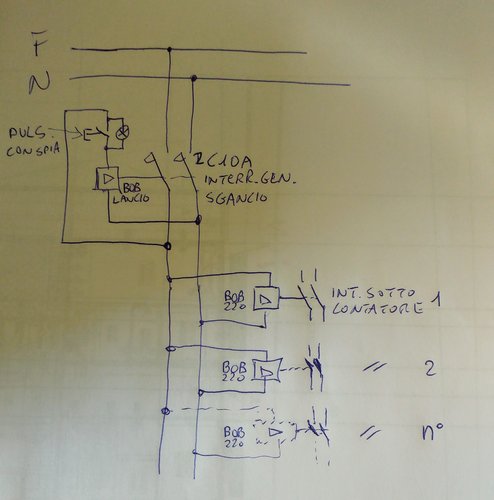 F
N
PULS.
CON SPIA
BOB
LANCIO
2C10A
INTERR. GEN.
SGANCIO
BOB
220
INT. SOTTO
CONTATORE 1
BOB
220
〃 2
BOB
220
〃 n°